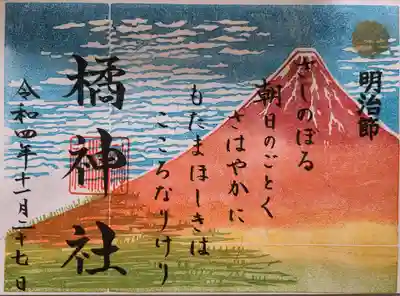 明治節
さしのぼる
朝日のごとく
さはやかに
もたまほしきは
こころなりけり
橘神社
令和四年十一月二十七日